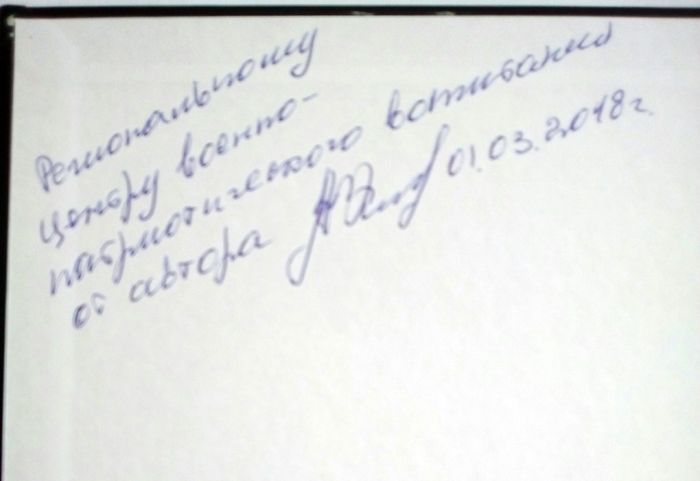 Региональному
центру военно-
патриотического воспитания
от автора 01.03.2018г.